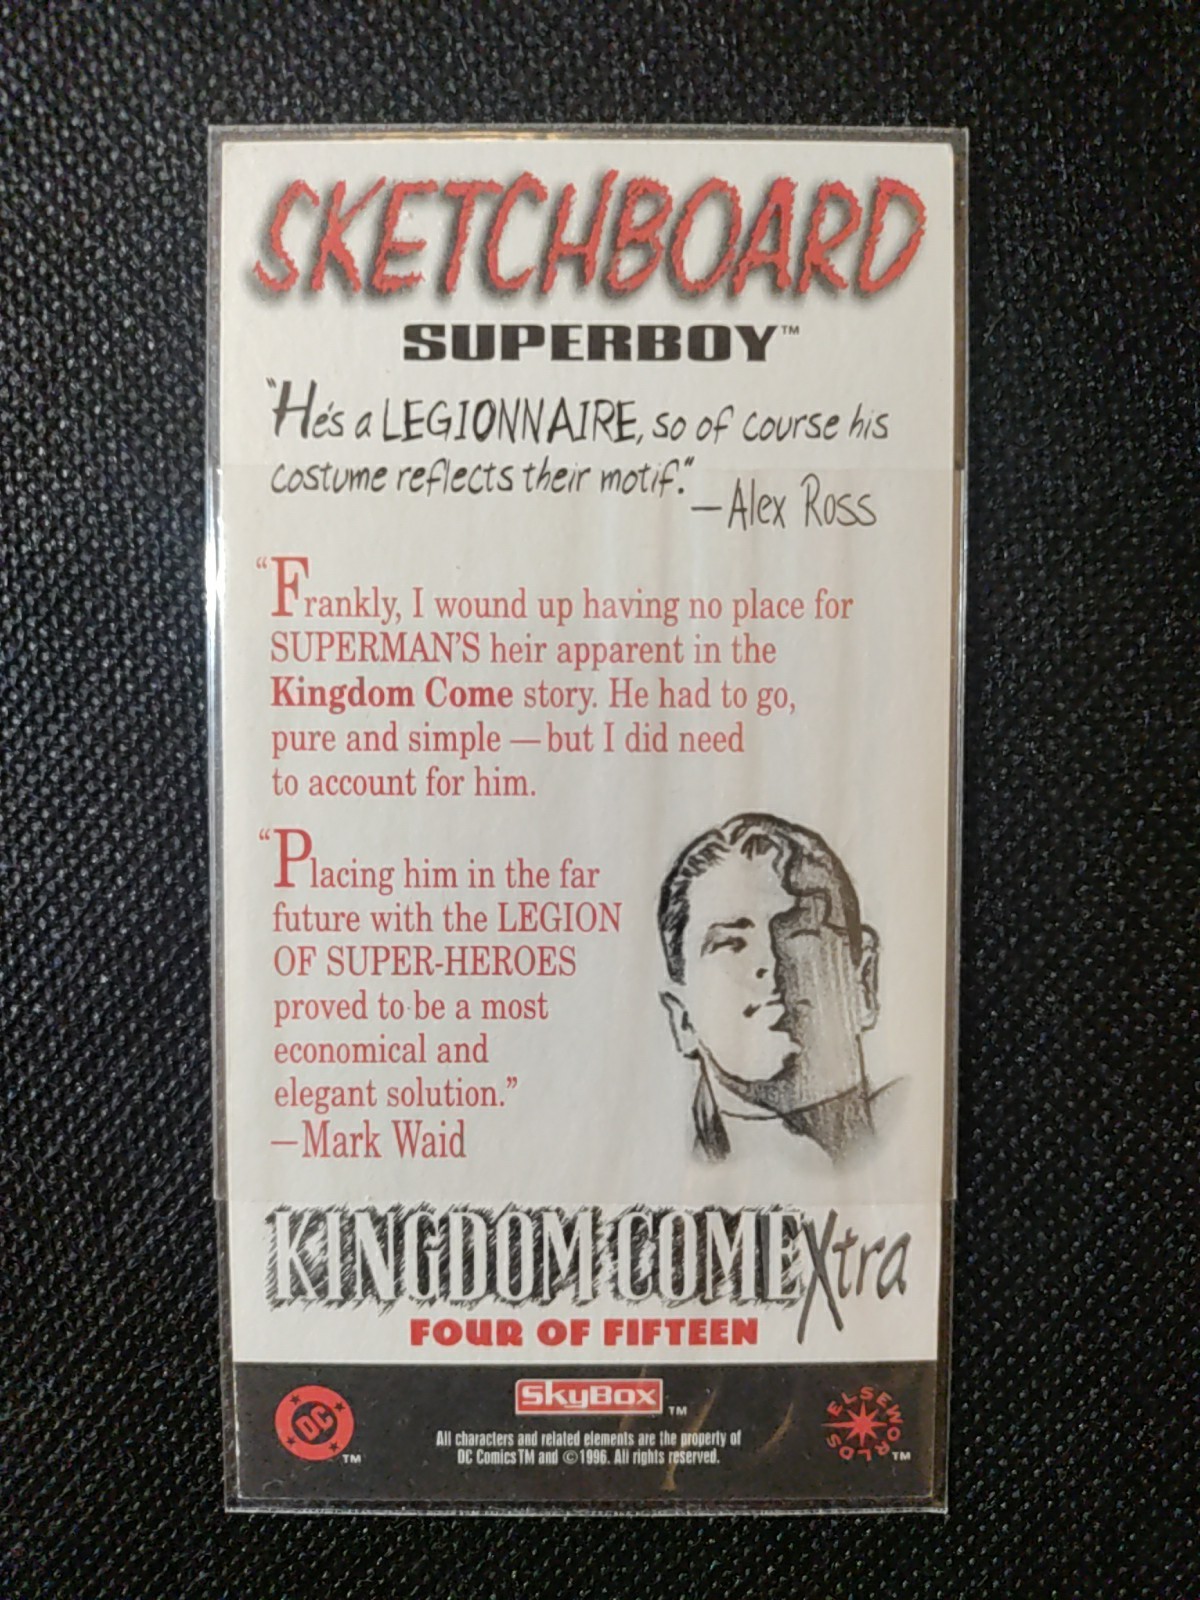 SKETCHBOARD
SUPERBOY™
"He's a LEGIONNAIRE, so of course his
costume reflects their motif."
—Alex Ross
"Frankly, I wound up having no place for
SUPERMAN'S heir apparent in the
Kingdom Come story. He had to go,
pure and simple — but I did need
to account for him.
"Placing him in the far
future with the LEGION
OF SUPER-HEROES
proved to be a most
economical and
elegant solution."
—Mark Waid
KINGDOM COME Xtra
FOUR OF FIFTEEN
DC™
SkyBox™
All characters and related elements are the property of
DC Comics TM and ©1996. All rights reserved.
ELSEWORLDS™